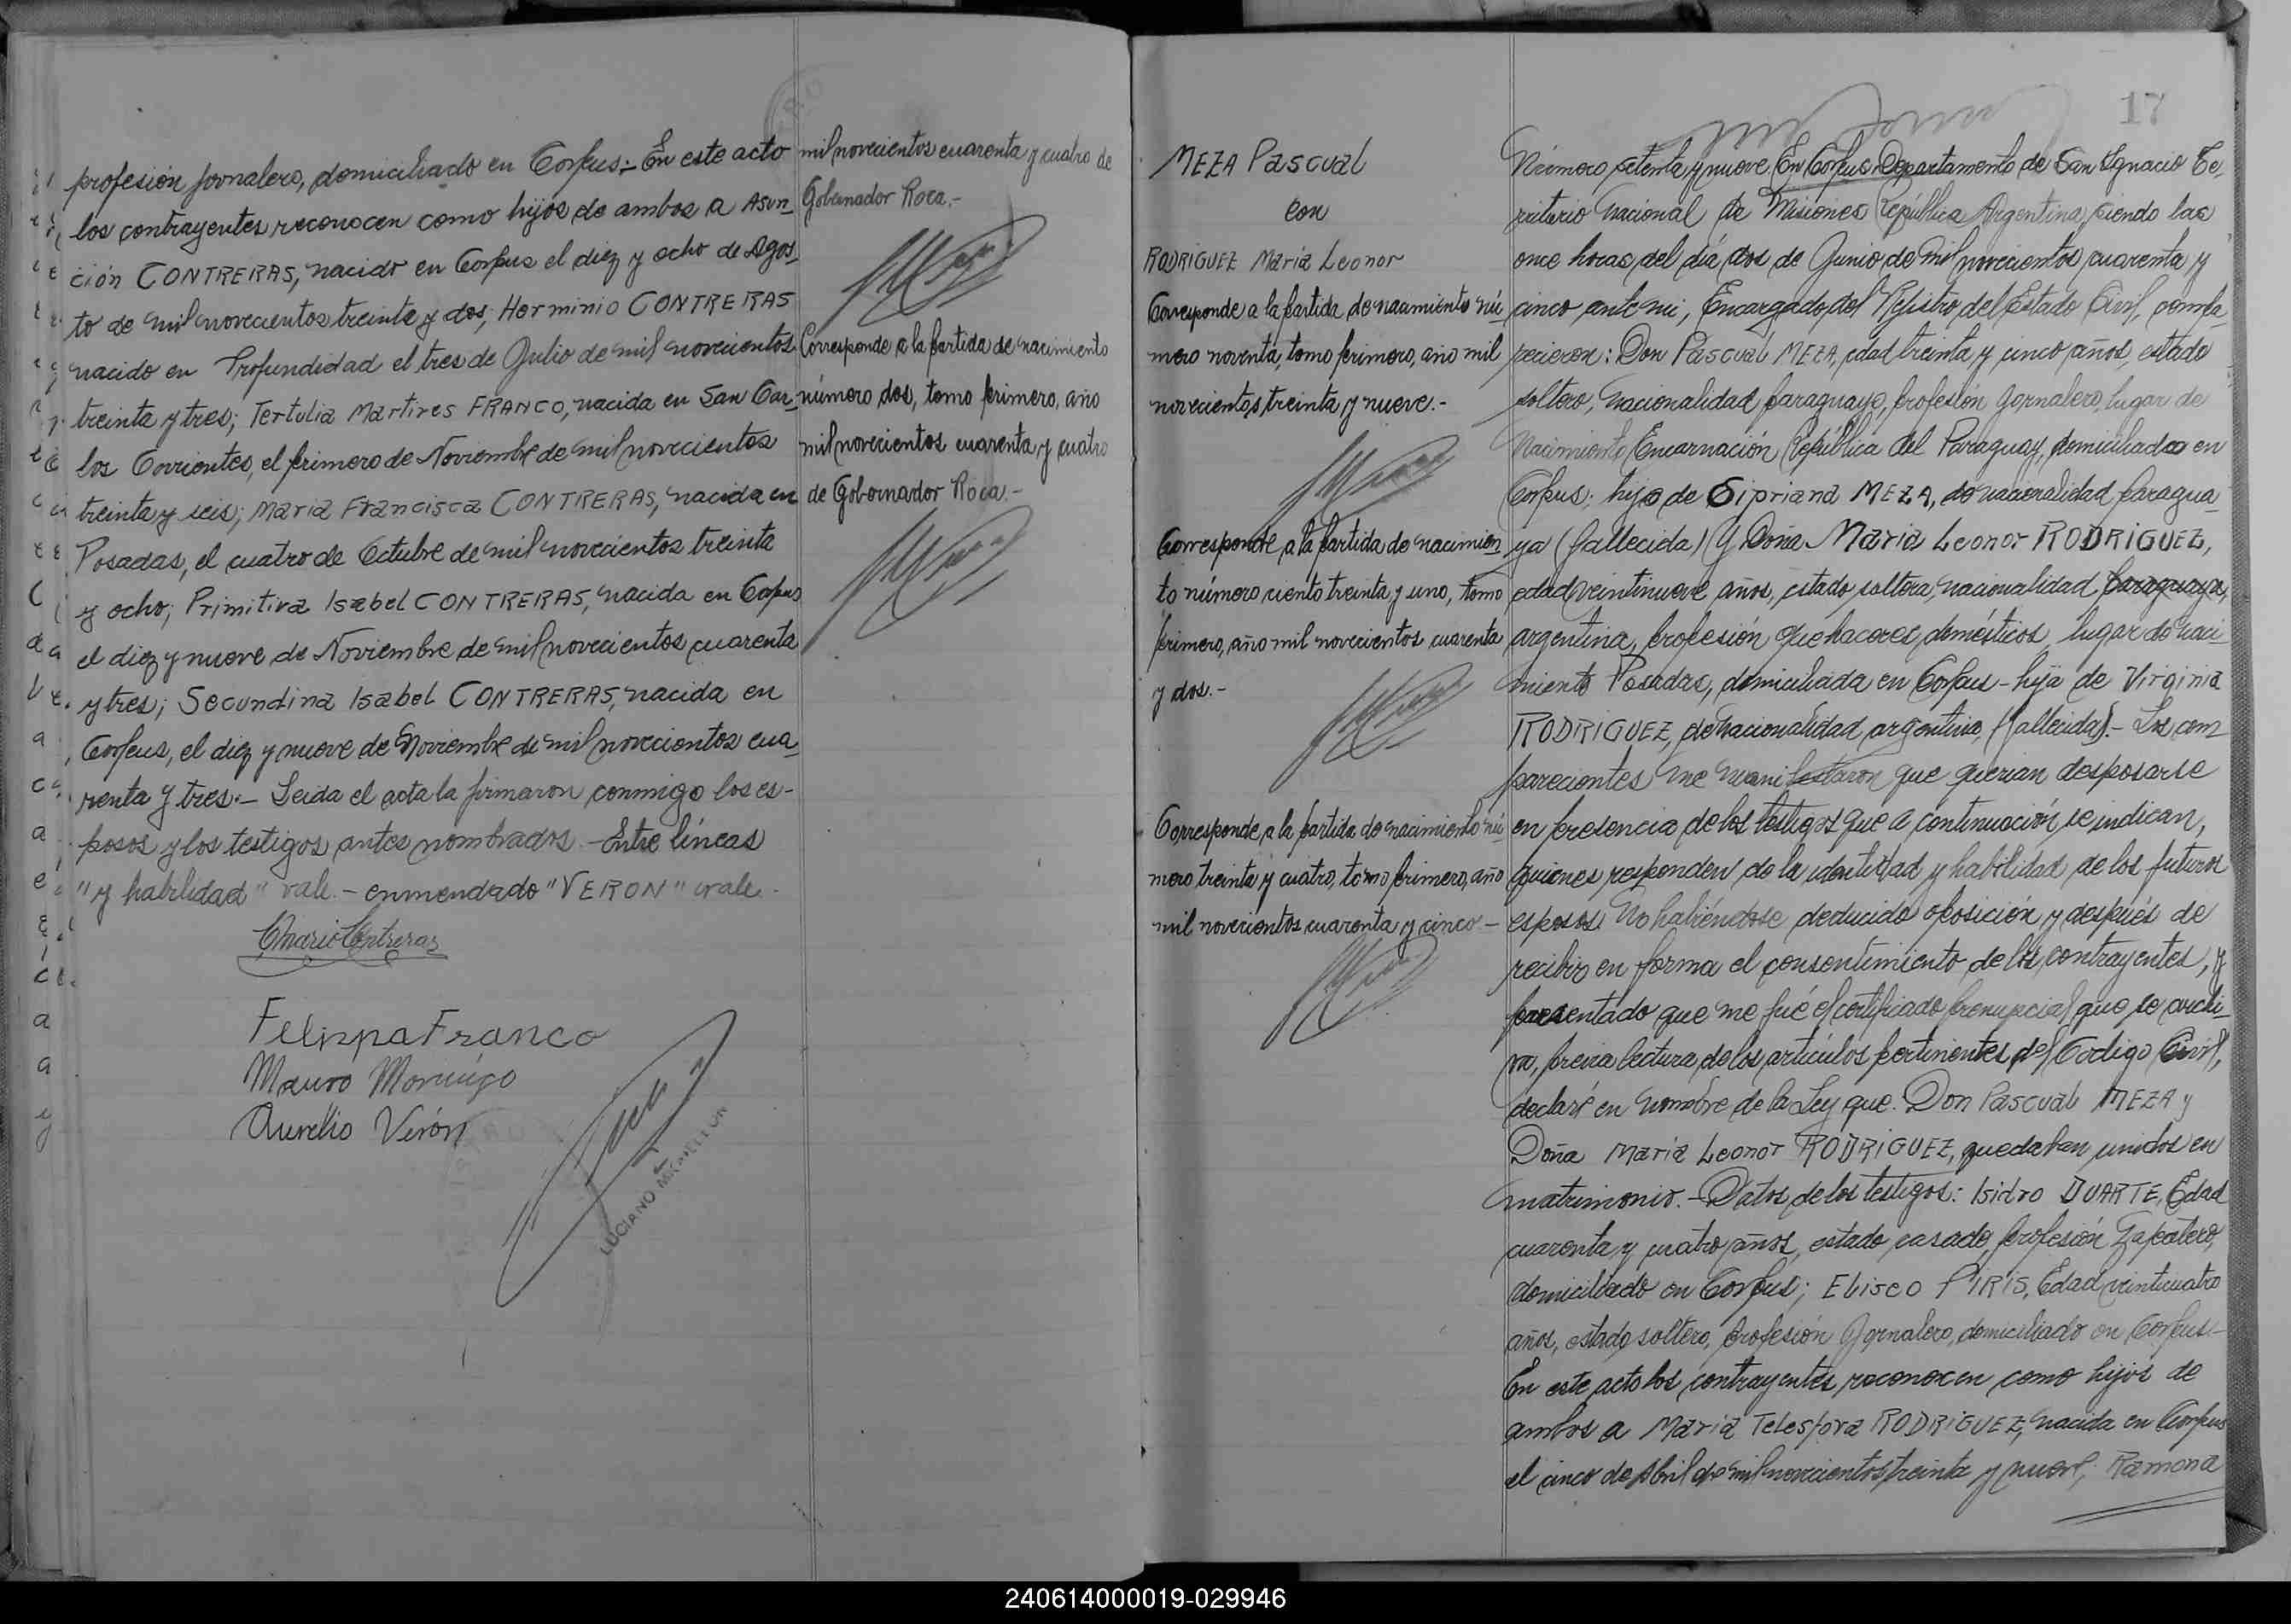 profesión jornalero, domiciliado en Corpus.- En este acto
los contrayentes reconocen como hijos de ambos a Asun-
ción CONTRERAS, nacido en Corpus el diez y ocho de Agos-
to de mil novecientos treinta y dos; Herminio CONTRERAS
nacido en Profundidad el tres de Julio de mil novecientos
treinta y tres; Tertulia Martires FRANCO, nacida en San Car-
los Corrientes, el primero de Noviembre de mil novecientos
treinta y seis; Maria Francisca CONTRERAS, nacida en
Posadas, el cuatro de Octubre de mil novecientos treinta
y ocho; Primitiva Isabel CONTRERAS, nacida en Corpus
el diez y nueve de Noviembre de mil novecientos cuarenta
y tres; Secundina Isabel CONTRERAS, nacida en
Corpus, el diez y nueve de Noviembre de mil novecientos cua-
renta y tres.- Leida el acta la firmaron conmigo los es-
posos y los testigos antes nombrados.- Entre líneas
"y habilidad" vale.- enmendado "VERON" vale.
Mario Contreras
Felippa Franco
Mauro Moringo
Aurelio Verón
LUCIANO
mil novecientos cuarenta y cuatro de
Gobernador Roca.-
Corresponde a la partida de nacimiento
número dos, tomo primero, año
mil novecientos cuarenta y cuatro
de Gobernador Roca.-
17
MEZA Pascual
con
RODRIGUEZ Maria Leonor
Corresponde a la partida de nacimiento nú-
mero noventa, tomo primero, año mil
novecientos treinta y nueve.-
Corresponde a la partida de nacimien-
to número ciento treinta y uno, tomo
primero, año mil novecientos cuarenta
y dos.-
Corresponde a la partida de nacimiento nú-
mero treinta y cuatro, tomo primero, año
mil novecientos cuarenta y cinco.-
Número setenta y nueve. En Corpus Departamento de San Ignacio Te-
rritorio Nacional de Misiones República Argentina, siendo las
once horas del día dos de Junio de mil novecientos cuarenta y
cinco, ante mi, Encargado del Registro del Estado Civil, compa-
recieron: Don Pascual MEZA, edad treinta y cinco años, estado
soltero, nacionalidad paraguayo, profesión Jornalero, lugar de
Nacimiento Encarnación República del Paraguay, domiciliado en
Corpus; hijo de Sipriana MEZA, de nacionalidad paragua-
ya (fallecida) Y Doña Maria Leonor RODRIGUEZ,
edad veintinueve años, estado soltera, nacionalidad paraguaya,
argentina, profesión quehaceres domésticos, lugar de naci-
miento Posadas, domiciliada en Corpus - hija de Virginia
RODRIGUEZ, de nacionalidad argentina, (fallecida).- Los com-
parecientes me manifestaron que querian desposarse
en presencia de los testigos que a continuación se indican,
quienes responden de la identidad y habilidad de los futuros
esposos. No habiéndose deducido oposición y después de
recibir en forma el consentimiento de los contrayentes, y
presentado que me fué el certificado prenupcial que se archi-
va, previa lectura de los artículos pertinentes del Codigo Civil,
declaré en nombre de la Ley que. Don Pascual MEZA y
Doña Maria Leonor RODRIGUEZ, quedaban unidos en
matrimonio.- Datos de los testigos: Isidro DUARTE, Edad
cuarenta y cuatro años, estado casado, profesión Zapatero,
domiciliado en Corpus; Eliseo PIRIS, Edad veinticuatro
años, estado soltero, profesión Jornalero, domiciliado en Corpus-
En este acto los contrayentes reconocen como hijos de
ambos a Maria Telesfora RODRIGUEZ, nacida en Corpus
el cinco de Abril de mil novecientos treinta y nueve; Ramona
240614000019-029946